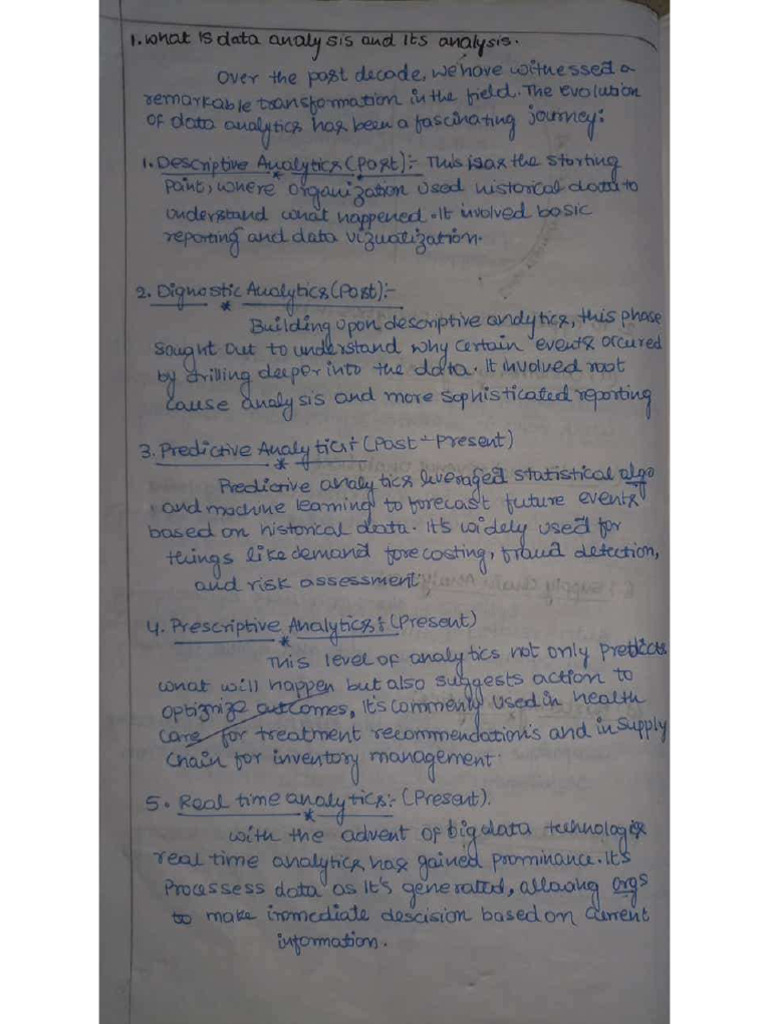 1. what is data analysis and its analysis.
Over the past decade, we have witnessed a
remarkable transformation in the field. The evolution
of data analytics has been a fascinating journey:
1. Descriptive Analytics (Past):- This is as the starting
point, where organization used historical data to
understand what happened. It involved basic
reporting and data vizualization.
2. Dignostic Analytics (Past):-
Building upon descriptive analytics, this phase
sought out to understand why certain events occured
by drilling deeper into the data. It involved root
cause analysis and more sophisticated reporting
3. Predictive Analytics: (Past - Present)
Predictive analytics leveraged statistical algo
and machine learning to forecast future events
based on historical data. It's widely used for
things like demand forecosting, fraud detection,
and risk assessment.
4. Prescriptive Analytics: (Present)
This level of analytics not only predicts
what will happen but also suggests action to
optimize outcomes, It's commonly used in health
care for treatment recommendations and in supply
chain for inventory management.
5. Real time analytics:- (Present).
with the advent of big data technologies
real time analytics has gained prominance. It's
Processess data as it's generated, allowing orgs
to make immediate descision based on current
information.